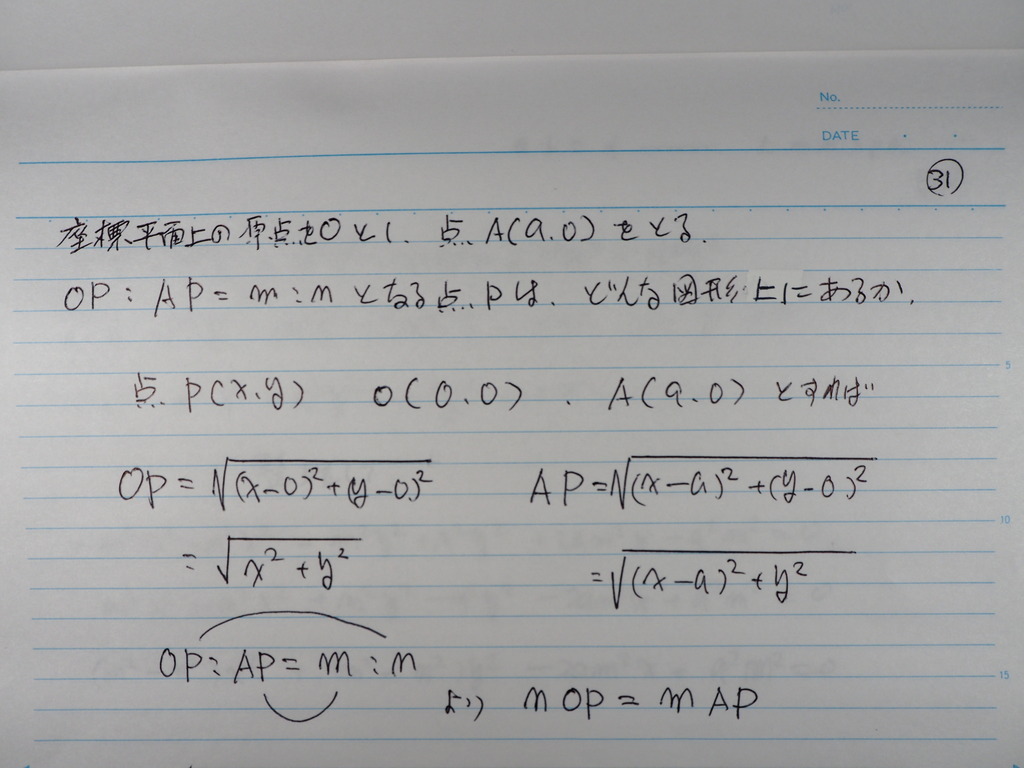 No.
DATE
31
座標平面上の原点をOとし、点A(a.0)をとる.
OP:AP=m:nとなる点Pは、どんな図形上にあるか.
5
点P(x.y) O(0.0) . A(a.0)とすれば
OP=√(x-0)²+(y-0)² AP=√(x-a)²+(y-0)²
10
=√x²+y² =√(x-a)²+y²
OP:AP=m:n
15
より nOP=mAP